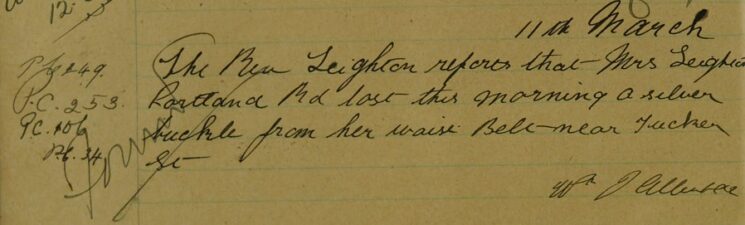 12.
11th March
P.C. 249.
The Rev Leighton reports that Mrs Leighton
P.C. 253.
Portland Rd lost this morning a silver
P.C. 106
buckle from her waist Belt near Tucker
P.C. 34
St
Wm J